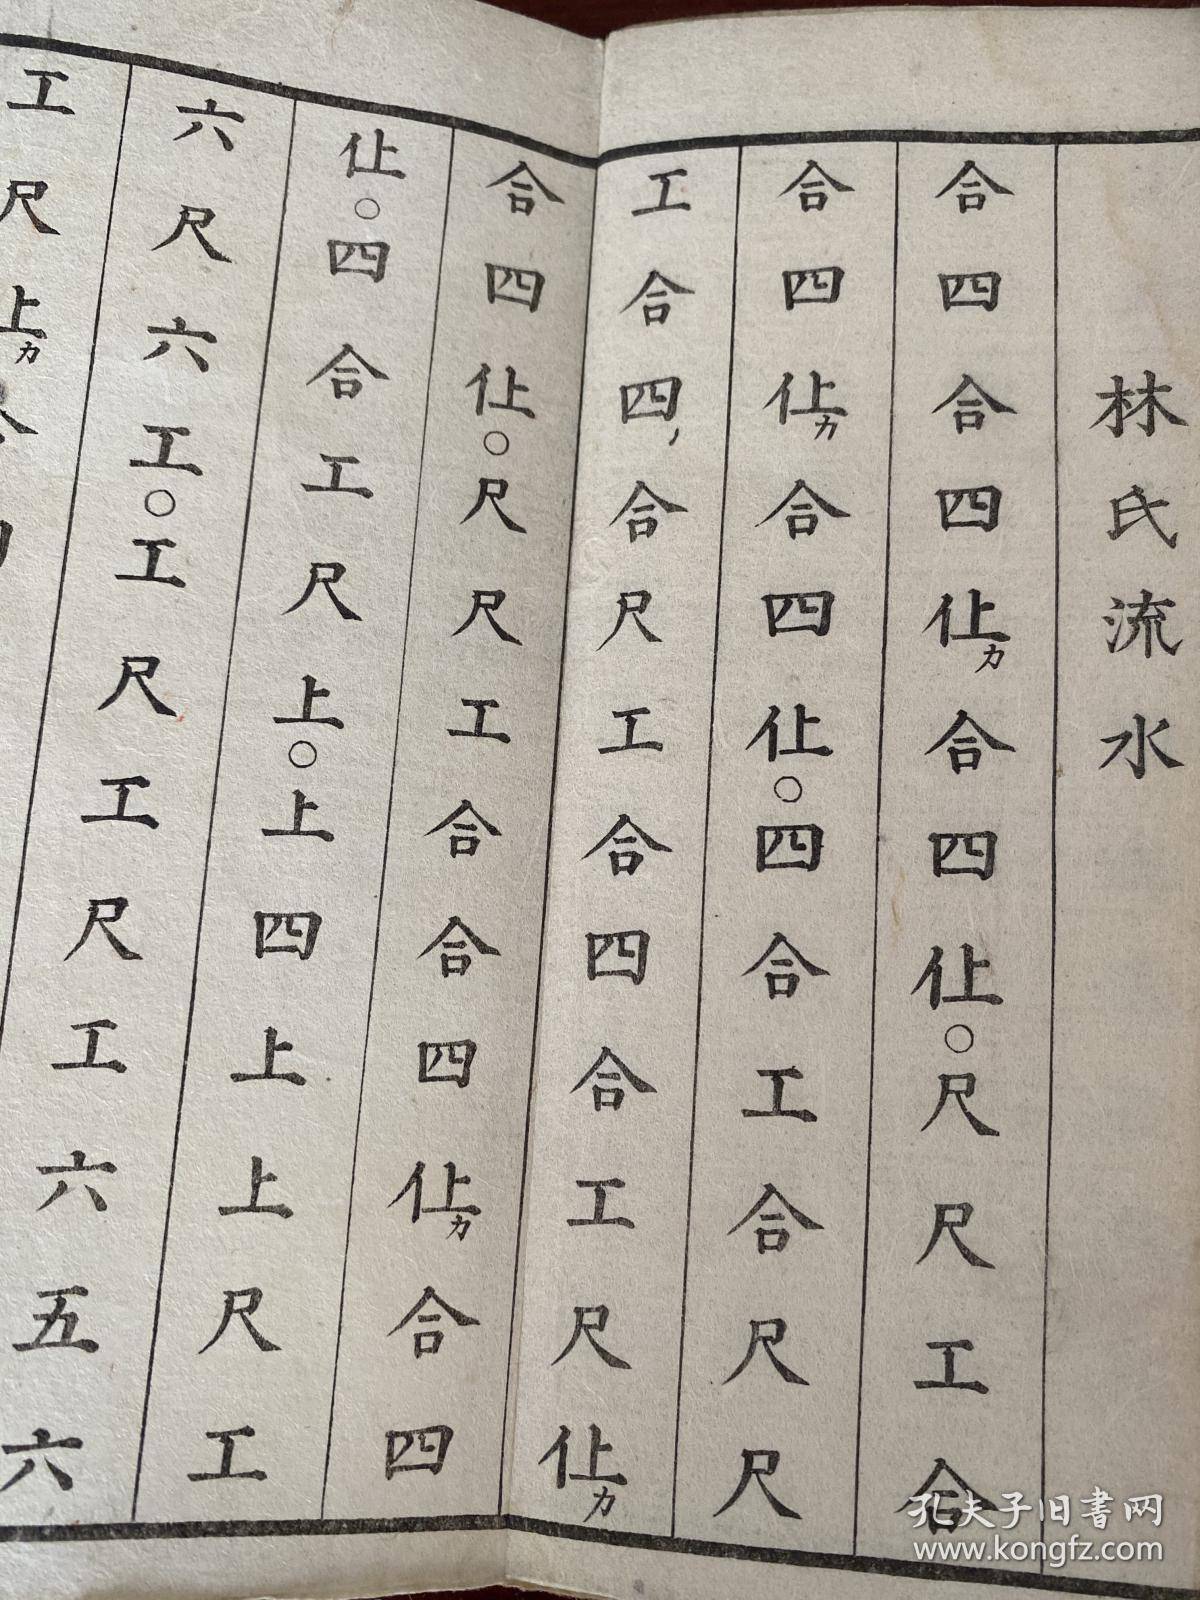 林氏流水
合四合四仩力合四仩○尺尺工合
合四仩力合四仩○四合工合尺尺
工合四、合尺工合四合工尺仩力
合四仩○尺尺工合合四仩力合四
仩○四合工尺上○上四上上尺工
六尺六工○工尺工尺工六五六
工尺上力合
孔夫子旧书网
www.kongfz.com